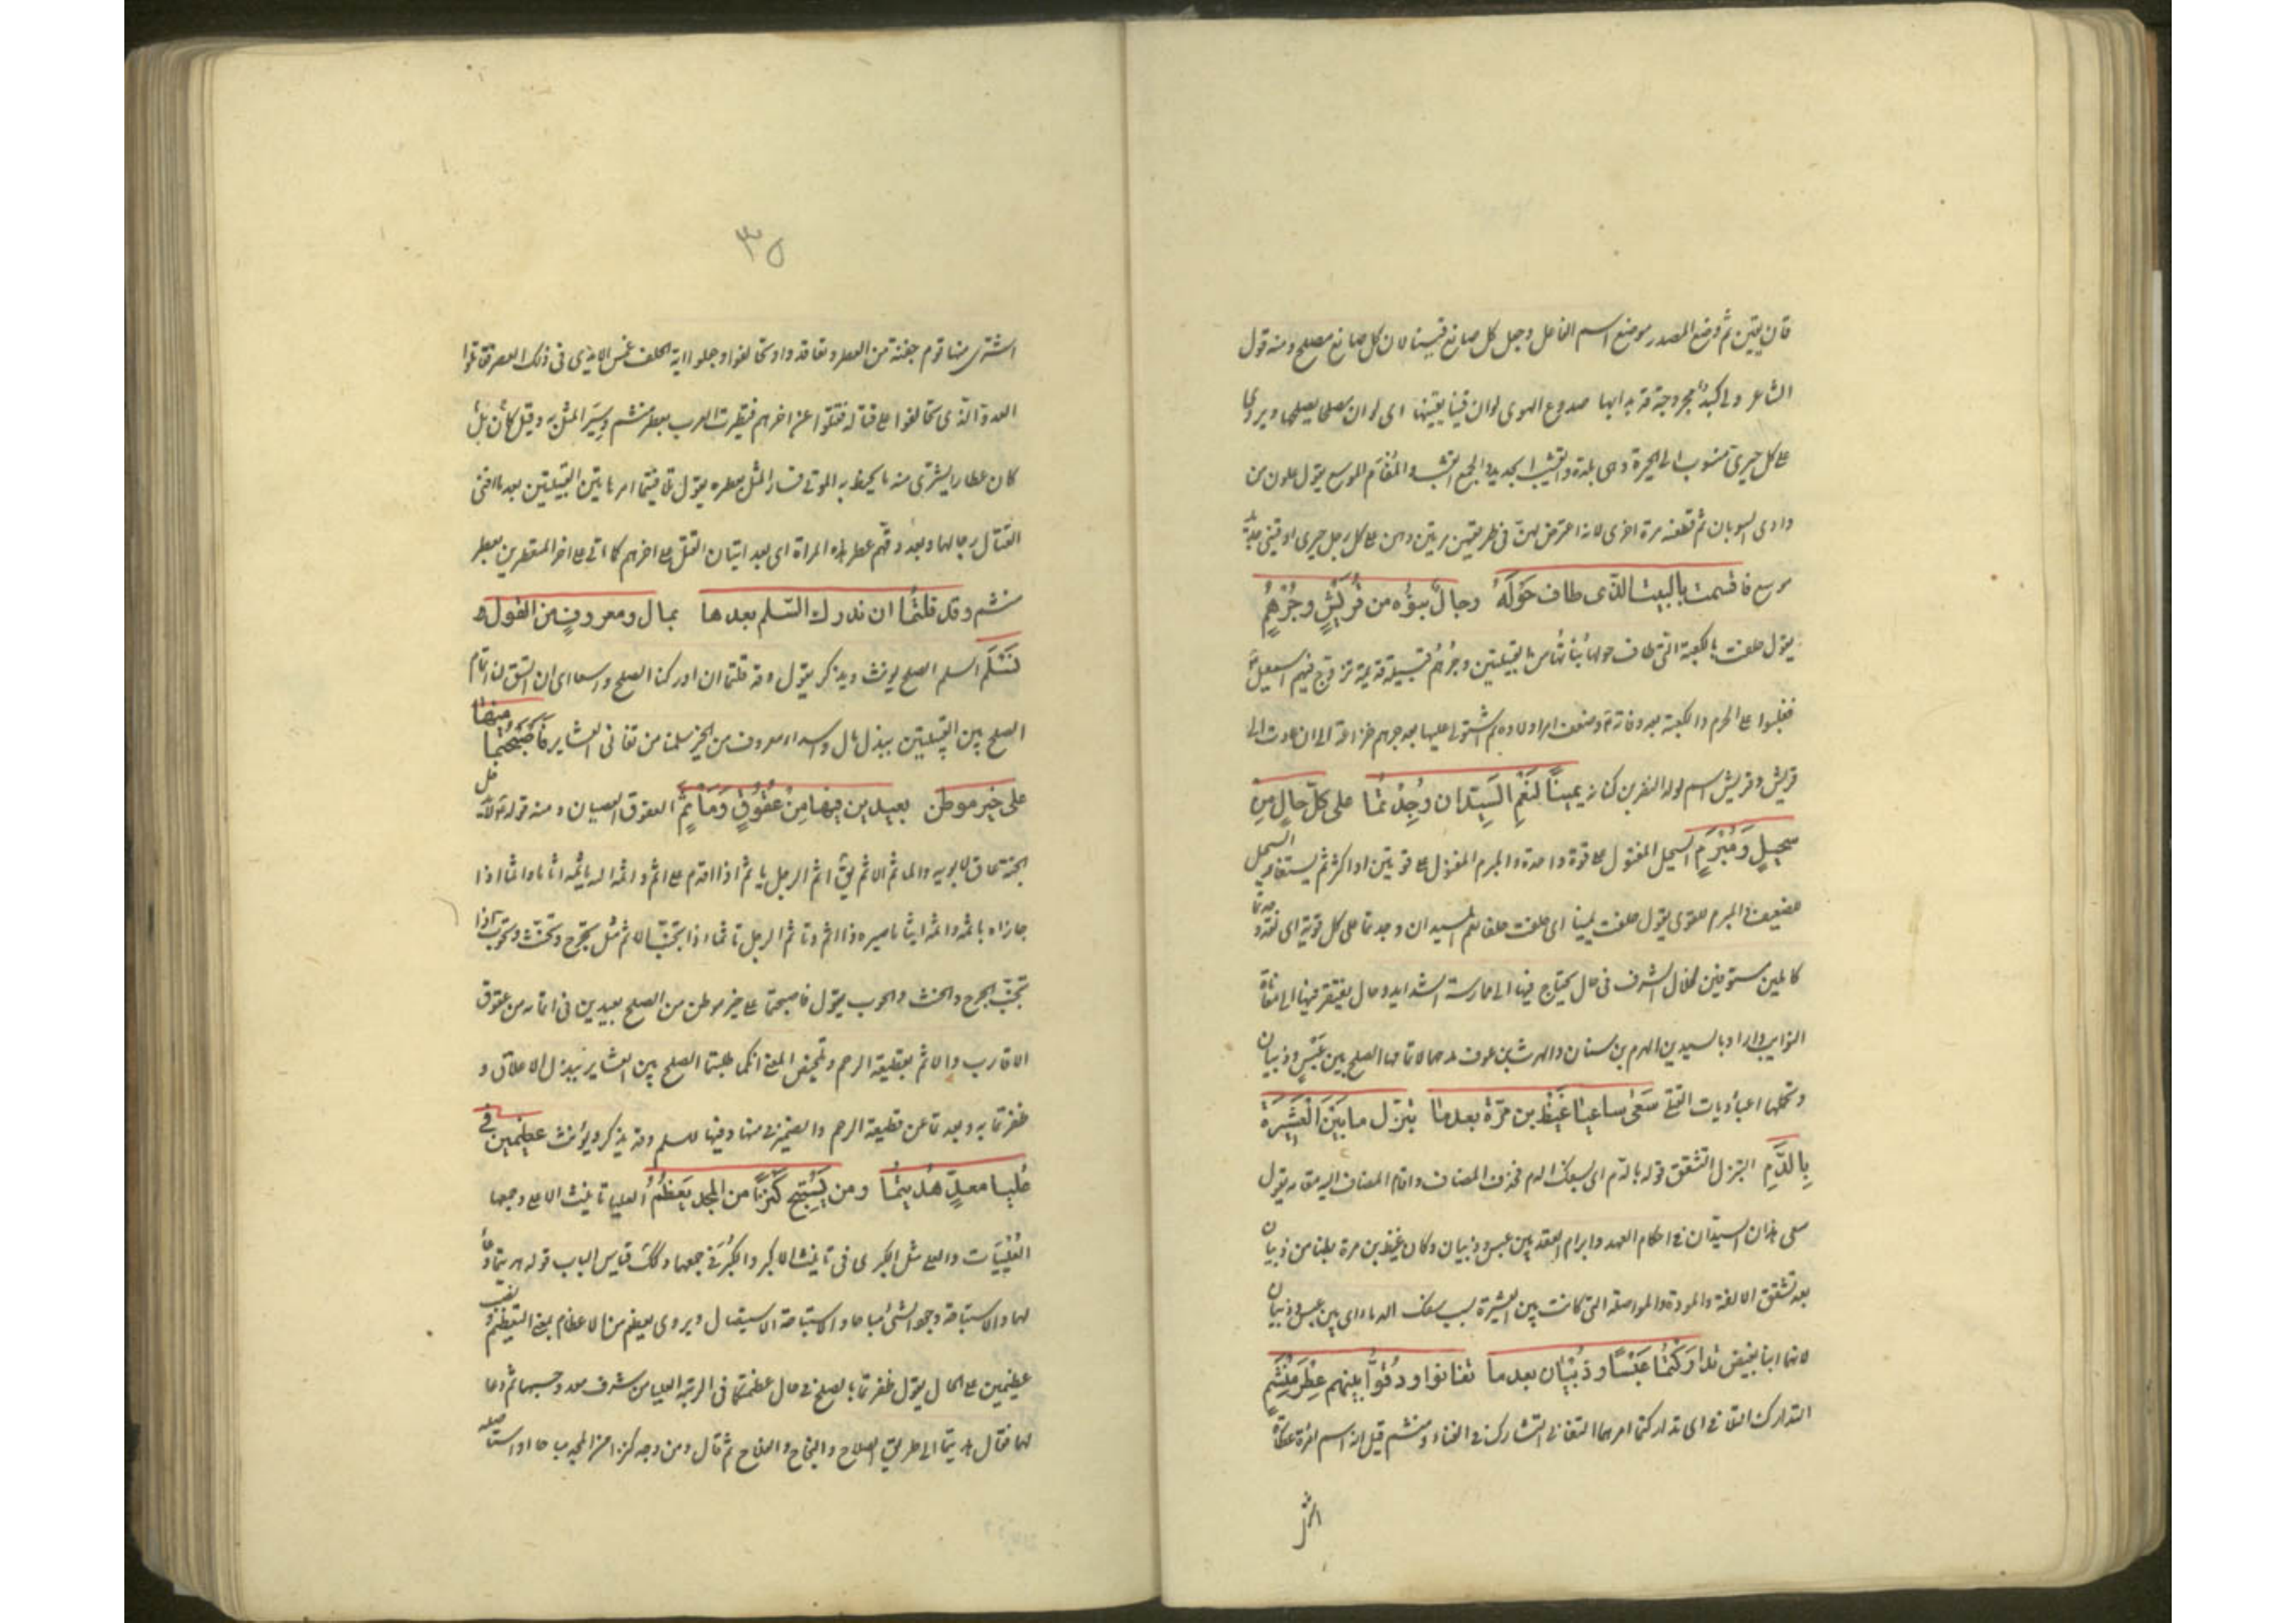 قان يقين ثم وضع المصدر موضع اسم الفاعل وجعل كل صانع قينا لان كل صانع مصلح ومنه قول
الشاعر ولي كبد مجروحة قد بدابها صدوع الهوى لوان قينا يقينها اى لو ان مصلحا يصلحها ويروى
على كل حيرى منسوب الى الحيرة وهى بلدة والقشيب الجديد والجمع القشب والمفأم الموسع يقول علون من
وادى السوبان ثم قطعنه مرة اخرى لانه اعترض لهن فى طريقهن مرتين وهن على كل رحل حيرى او قينى جديد
موسع فاقسمت بالبيت الذى طاف حَولَهُ رجالٌ بنوه من قُرَيشٍ وجُرْهُمِ
يقول حلفت بالكعبة التى طاف حولها بناتها من القبيلتين وجرهم قبيلة قديمة تزوج فيهم اسمعيل
فغلبوا على الحرم والكعبة بعد وفاته وضعف امر اولاده ثم استولى عليها بعد جرهم خزاعة الى ان عادت الى
قريش وقريش اسم لولد النضر بن كنانة يمينًا لَنِعْمَ السَيِّدان وُجِدْتُما على كلّ حالٍ مِن
سحيلٍ وَمُبْرَمِ السحيل المفتول على قوة واحدة والمبرم المفتول على قوتين او اكثر ثم يستعار السحيل
للضعيف والمبرم للقوى يقول حلفت يمينا اى حلفت حلفا نعم السيدان وجدتما على كل قوية اى لقد وجدتما
كاملين مستوفيين لخلال الشرف فى حال يحتاج فيها الى ممارسة الشدايد وحال يفتقر فيها الى معاناة
النوايب واراد بالسيدين الهرم بن سنان والحرث بن عوف مدحهما لاتمامهما الصلح بين عَبْسٍ وذبيان
وتحملهما اعباء ديات القتلى سَعَى ساعيا غَيظِ بن مُرّة بعدما تبزّل ما بَيْنَ الْعَشيرَة
بِالدَّمِ التبزل التشقق قوله بالدم اى بسفك الدم فحذف المضاف واقام المضاف اليه مقامه يقول
سعى هذان السيّدان فى احكام العهد وابرام العقد بين عبس وذبيان وكان غيظ بن مرة بطنا من ذبيان
بعد تشقق الالفة والمودة والمواصلة التى كانت بين العشيرة بسبب سفك الدماء اى بين عبس وذبيان
لانهما ابنا بغيض تدارَكْتُما عَبْسًا وذُبْيان بعدما تفانوا ودُقّوا بينهم عِطْرَ مَنْشَمِ
التدارك التلافى اى تداركتما امرهما التفانى التشارك فى الفناء ومنشم قيل انه اسم امراة عطارة
اشتر
٣٥
اشترى منها قوم جفنة من العطر وتعاقدوا وتحالفوا وجعلوا اية الحلف غمس الايدى فى ذلك العطر فقاتلوا
العدو الذى تحالفوا على قتاله فقتلوا عن اخرهم فتطيرت العرب بعطر منشم وسُيِّر المثل به وقيل كان بل
كان عطارا يشترى منه ما يحنط به الموتى فسار المثل بعطره يقول تلافيتما امر هاتين القبيلتين بعد ما افنى
القتال رجالها وبعد دقهم عطر هذه المراة اى بعد اتيان القتل على اخرهم كما اتى على اخر المتعطرين بعطر
منشم وقد قلتُما ان ندرك السّلم بعدها بمال ومعروفٍ من القول
نَسْلَمِ السلم الصلح يونث ويذكر يقول وقد قلتما ان ادركنا الصلح واسعا اى ان اتفق لنا اتمام
الصلح بين القبيلتين ببذل المال واسداء معروف من الخير سلمنا من تفانى العشاير فَاَصْبَحْتُما منها
على خير موطن بعيدين فيها مِنْ عُقُوقٍ وَمَأثَمِ العقوق العصيان ومنه قوله لا يدخل
الجنة عاق لابويه والماثم الاثم يق اثم الرجل ياثم اذا اقدم على اثم واثمه الله ياثمه اثاما واثما اذا
جازاه باثمه واثمه ايثاما صيره ذا اثم وتاثم الرجل تاثما اذا تجنّب الاثم مثل تحرّج وتحنّث وتحوّب اذا
تجنّب الحرج والحنث والحوب يقول فاصبحتما على خير موطن من الصلح بعيدين فى اتمامه من عقوق
الاقارب والاثم بقطيعة الرحم وتلخيص المعنى انكما طلبتما الصلح بين العشاير ببذل الاعلاق و
ظفرتما به وبعدتما عن قطيعة الرحم والضمير فى منها وفيها للسلم وقد يذكر ويؤنث عظيمين فى
عُليا معدٍّ هُديتُما ومن يَسْتَبِحْ كَنْزًا من المجد يَعْظُمُ العليا تانيث الاعلى وجمعها
العُلْيَيات والعلى مثل الكبرى فى تانيث الاكبر والكُبَر فى جمعها وكك قياس الباب قوله هديتما دعاء
لهما والاستباحة وجود الشئ مباحا والاستباحة الاستيصال ويروى يعظم من الاعظام بمعنى التعظيم ونصب
عظيمين على الحال يقول ظفرتما بالصلح فى حال عظمتكما فى الرتبة العليا من شرف معد وحسبها ثم دعا
لهما فقال هديتما الى طريق الصلاح والنجاح والفلاح ثم قال ومن وجد كنزا من المجد مباحا او استاصله